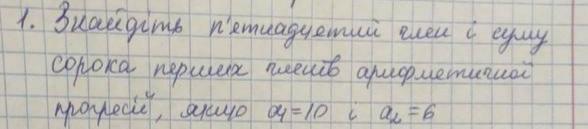 1. Знайдіть п'ятнадцятий член і суму
сорока перших членів арифметичної
прогресії, якщо a₁=10 і a₂=6